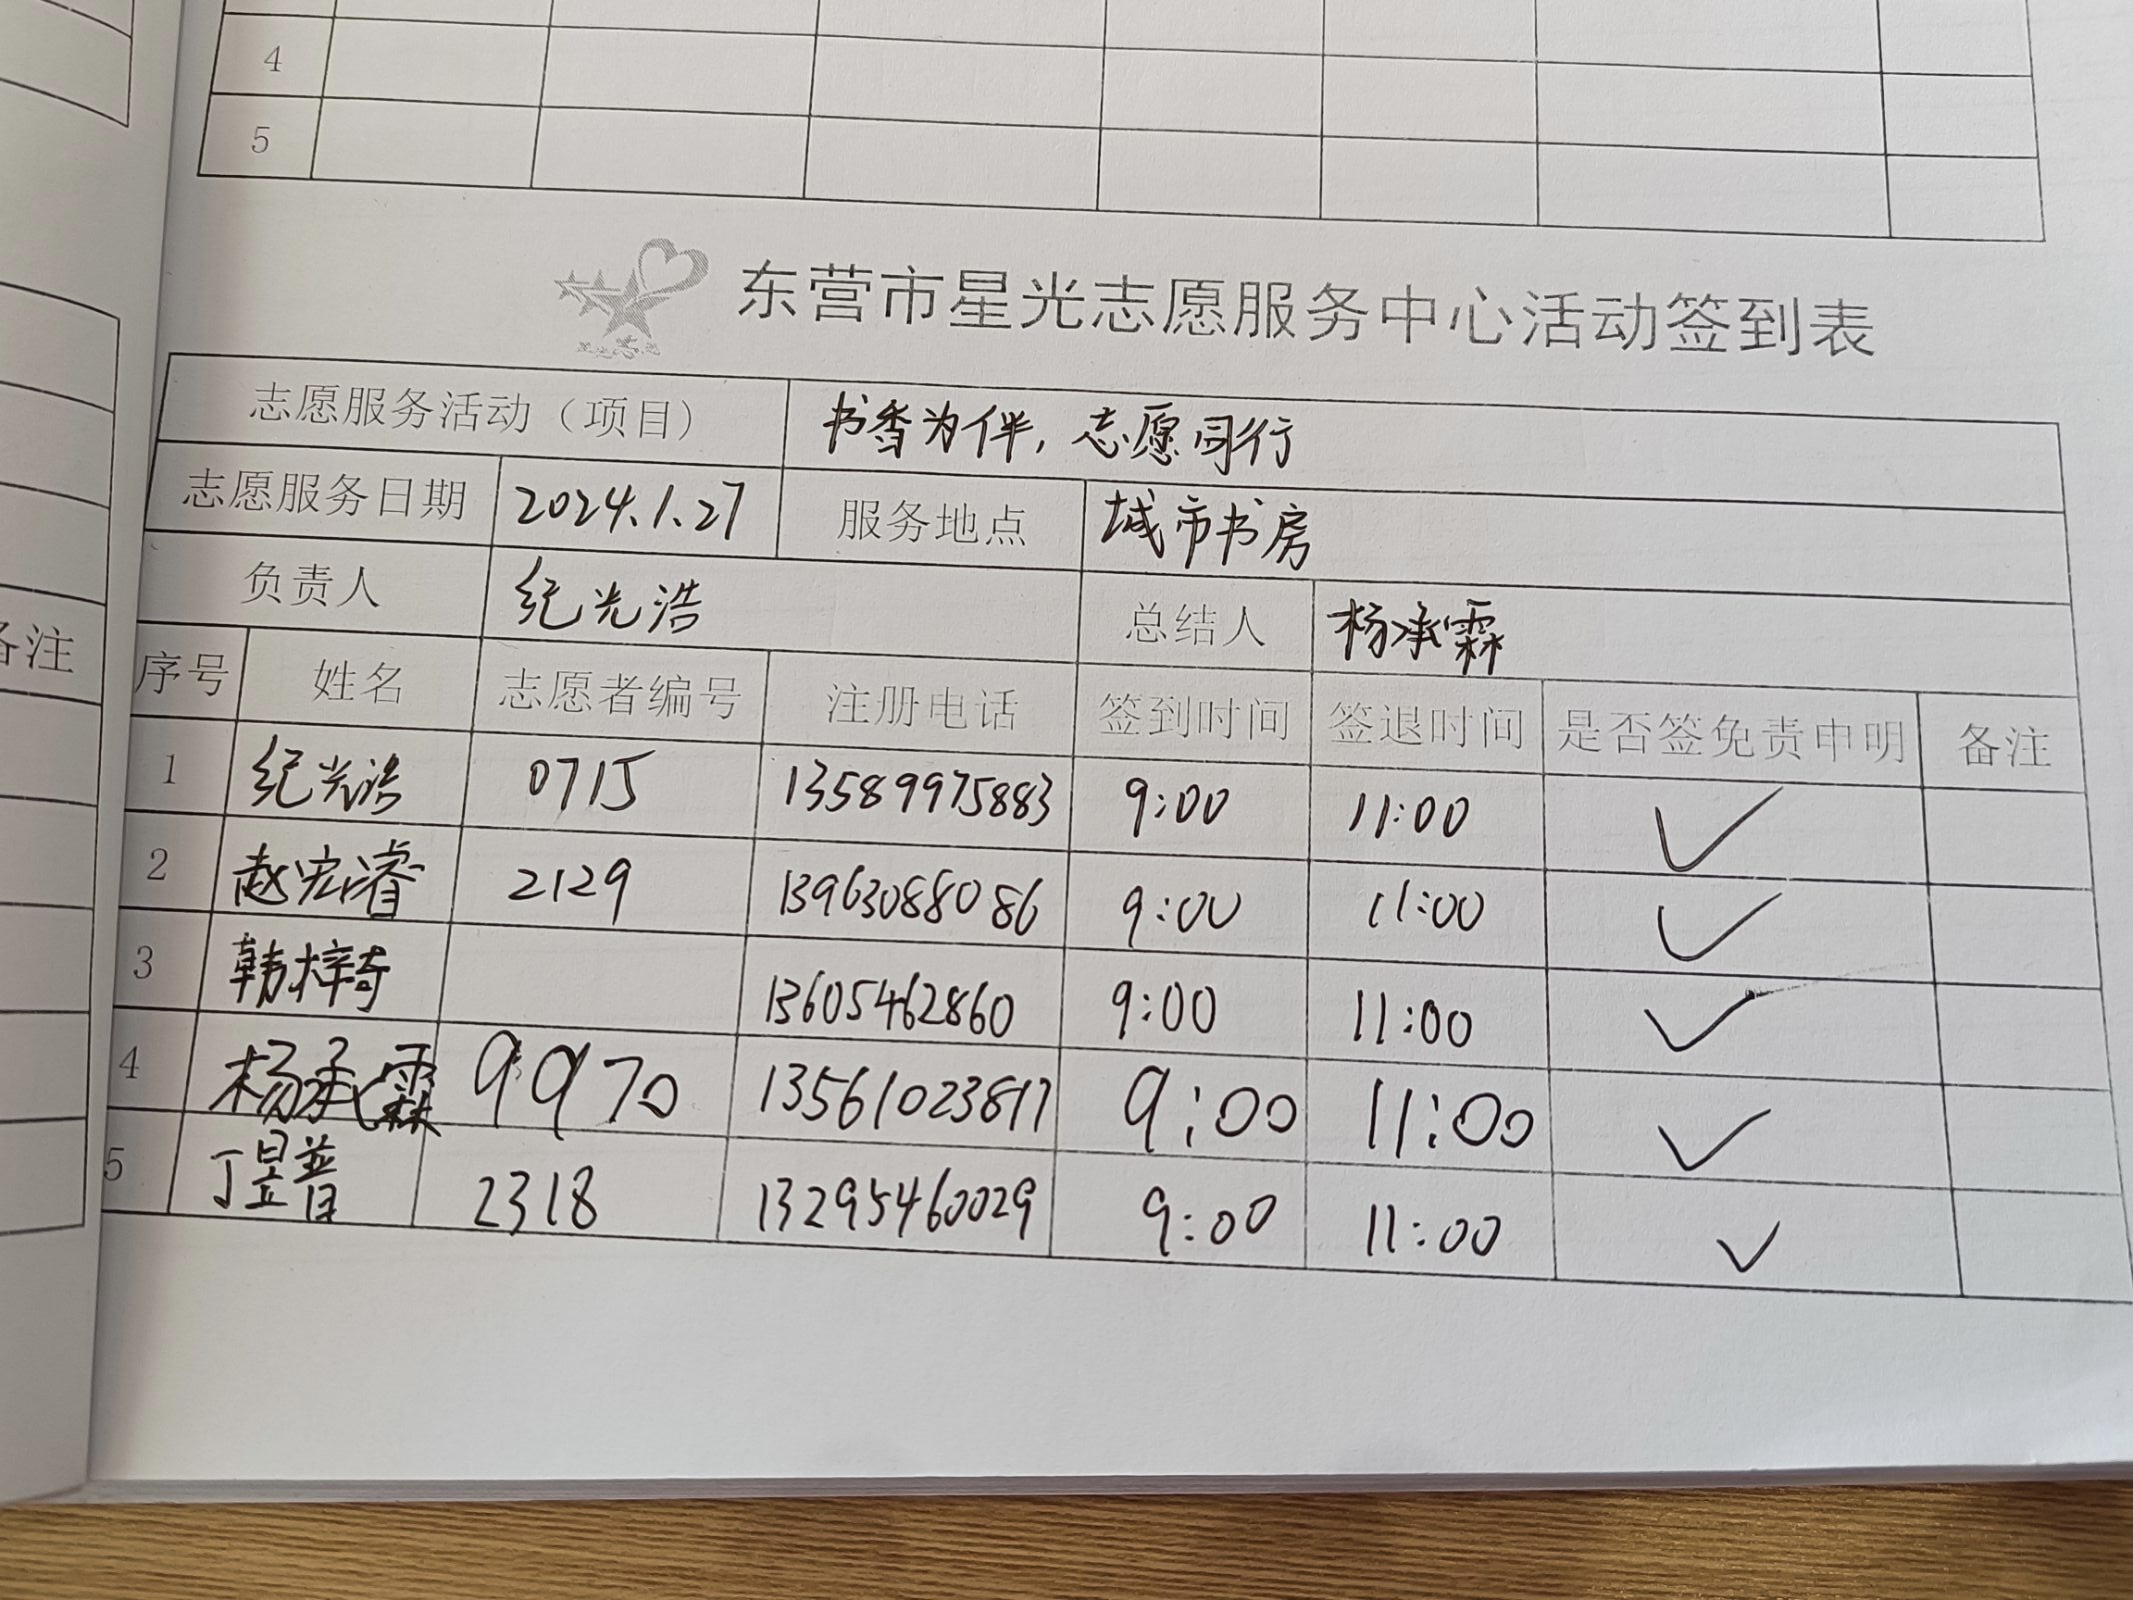 4
5
东营市星光志愿服务中心活动签到表
志愿服务活动（项目） 书香为伴，志愿同行
志愿服务日期 2024.1.27 服务地点 城市书房
负责人 纪光浩 总结人 杨承霖
备注
序号 姓名 志愿者编号 注册电话 签到时间 签退时间 是否签免责申明 备注
1 纪光浩 0715 13589975883 9:00 11:00 ✓
2 赵宏睿 2129 13963088086 9:00 11:00 ✓
3 韩梓琦 13605462860 9:00 11:00 ✓
4 杨承霖 9970 13561023817 9:00 11:00 ✓
5 丁昱普 2318 13295460029 9:00 11:00 ✓